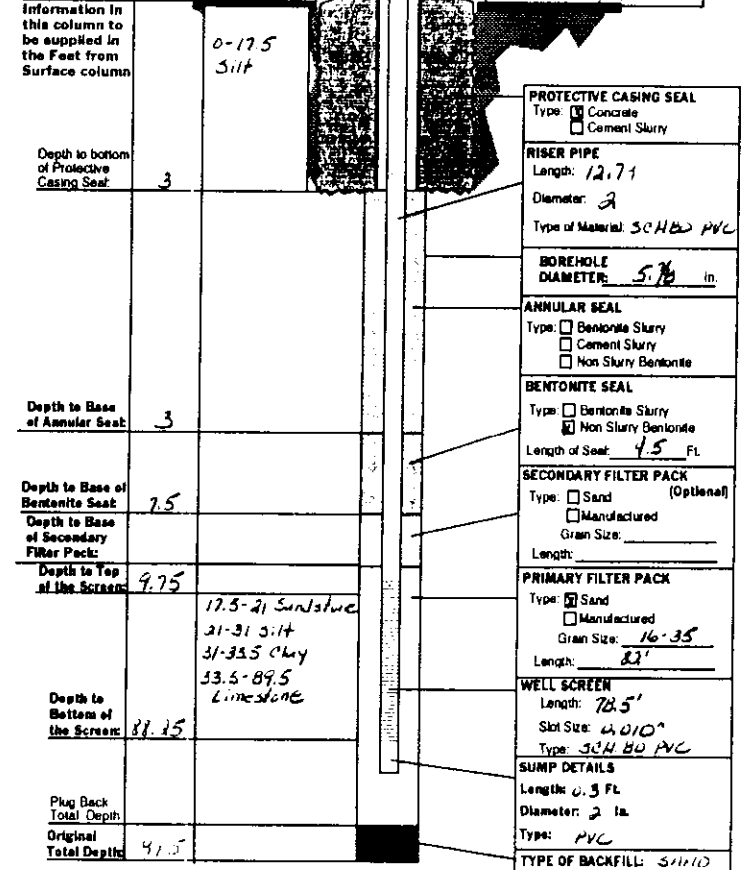 Information in
this column to
be supplied in
the Feet from
Surface column
0-17.5
Silt
Depth to bottom
of Protective
Casing Seal: 3
Depth to Base
of Annular Seal: 3
Depth to Base of
Bentonite Seal: 7.5
Depth to Base
of Secondary
Filter Pack:
Depth to Top
of the Screen: 9.75
17.5-21 Sandstone
21-31 Silt
31-33.5 Clay
33.5-89.5
Limestone
Depth to
Bottom of
the Screen: 88.25
Plug Back
Total Depth
Original
Total Depth:
PROTECTIVE CASING SEAL
Type: Concrete
Cement Slurry
RISER PIPE
Length: 12.71
Diameter: 2
Type of Material: SCH 80 PVC
BOREHOLE
DIAMETER: 5 7/8 in.
ANNULAR SEAL
Type: Bentonite Slurry
Cement Slurry
Non Slurry Bentonite
BENTONITE SEAL
Type: Bentonite Slurry
Non Slurry Bentonite
Length of Seal: 4.5 Ft.
SECONDARY FILTER PACK
Type: Sand (Optional)
Manufactured
Grain Size:
Length:
PRIMARY FILTER PACK
Type: Sand
Manufactured
Grain Size: 16-35
Length: 82'
WELL SCREEN
Length: 78.5'
Slot Size: 0.010"
Type: SCH 80 PVC
SUMP DETAILS
Length: 0.3 Ft.
Diameter: 2 In.
Type: PVC
TYPE OF BACKFILL: SAND